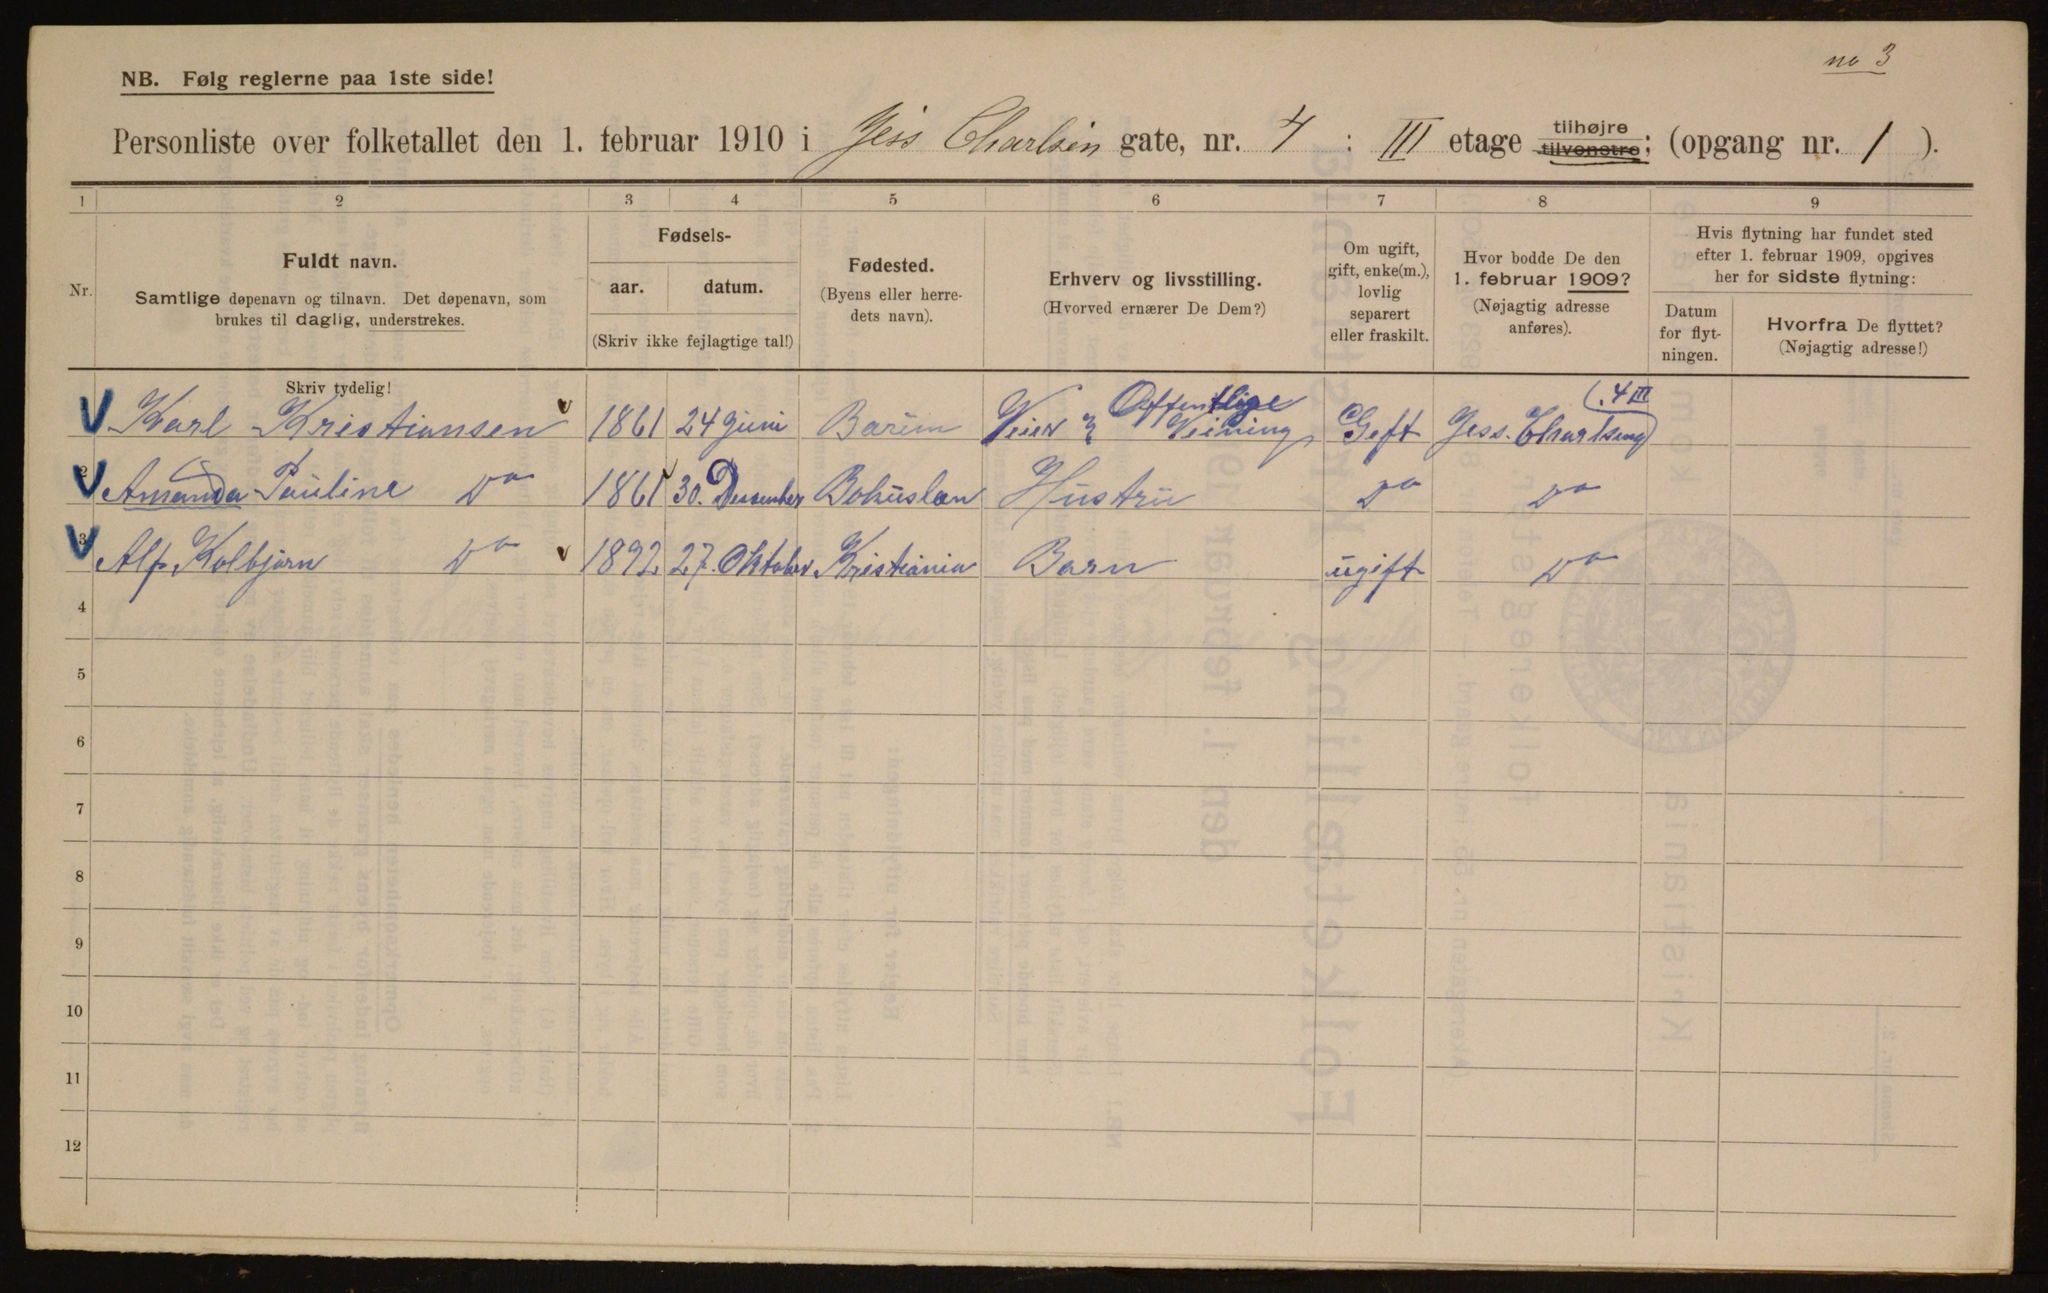 no 3
NB. Følg reglerne paa 1ste side!
Personliste over folketallet den 1. februar 1910 i Jess Charlsen gate, nr. 4 : III etage tilhøjre tilvenstre; (opgang nr. 1 ).
1 2 3 4 5 6 7 8 9
Nr.
Fuldt navn.
Samtlige døpenavn og tilnavn. Det døpenavn, som
brukes til daglig, understrekes.
Skriv tydelig!
Fødsels-
aar. datum.
(Skriv ikke fejlagtige tal!)
Fødested.
(Byens eller herre-
dets navn).
Erhverv og livsstilling.
(Hvorved ernærer De Dem?)
Om ugift,
gift, enke(m.),
lovlig
separert
eller fraskilt.
Hvor bodde De den
1. februar 1909?
(Nøjagtig adresse
anføres).
Hvis flytning har fundet sted
efter 1. februar 1909, opgives
her for sidste flytning:
Datum
for flyt-
ningen.
Hvorfra De flyttet?
(Nøjagtig adresse!)
Offentlige 4 III
Karl Kristiansen 1861 24 Juni Barum Veier Veining Geft Jess. Charlseng
2 Amanda Pauline Do 1861 30. Desember Bohuslen Hustru Do Do
3 Alf Kolbjørn Do 1892 27. Oktober Kristiania Barn ugift Do
4
5
6
7
8
9
10
11
12